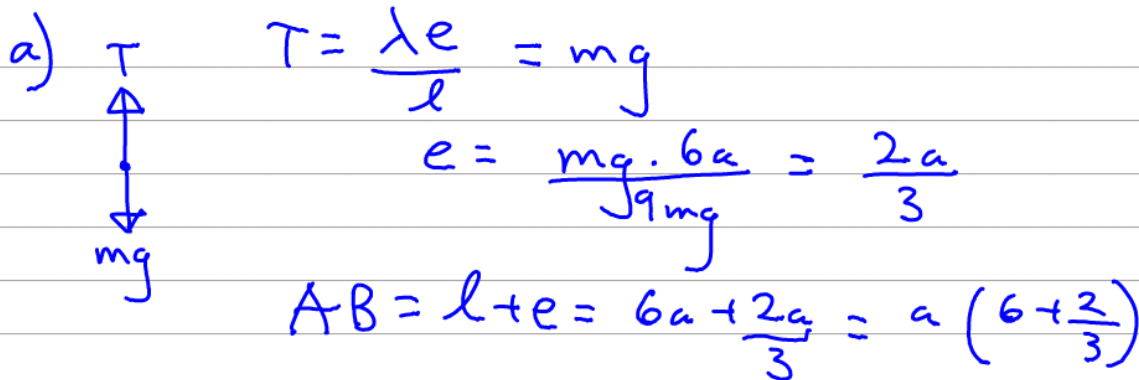 a) T T = λe/l = mg
e = mg . 6a / 9mg = 2a/3
mg
AB = l + e = 6a + 2a/3 = a (6 + 2/3)